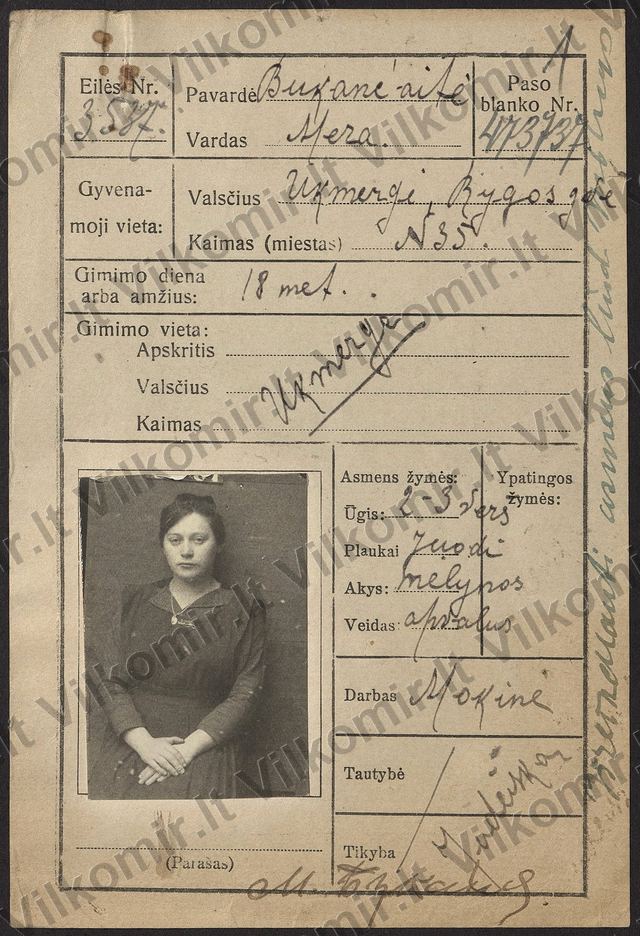 1
Eilės Nr.
3537.
Pavardė Bukancaitė
Vardas Mera.
Paso
blanko Nr.
473737
Gyvena-
moji vieta:
Valsčius Ukmergė, Rygos gvė
Kaimas (miestas) N35.
Gimimo diena
arba amžius: 18 met.
Gimimo vieta:
Apskritis
Valsčius
Kaimas
Ukmergė
Asmens žymės:
Ūgis: 2-3 vers
Plaukai Juodi
Akys: mėlynos
Veidas: apvalus
Ypatingos
žymės:
Darbas Mokinė
Tautybė
Tikyba
Žydiška
(Parašas)
M.
asmens liud
Vilkomir.lt